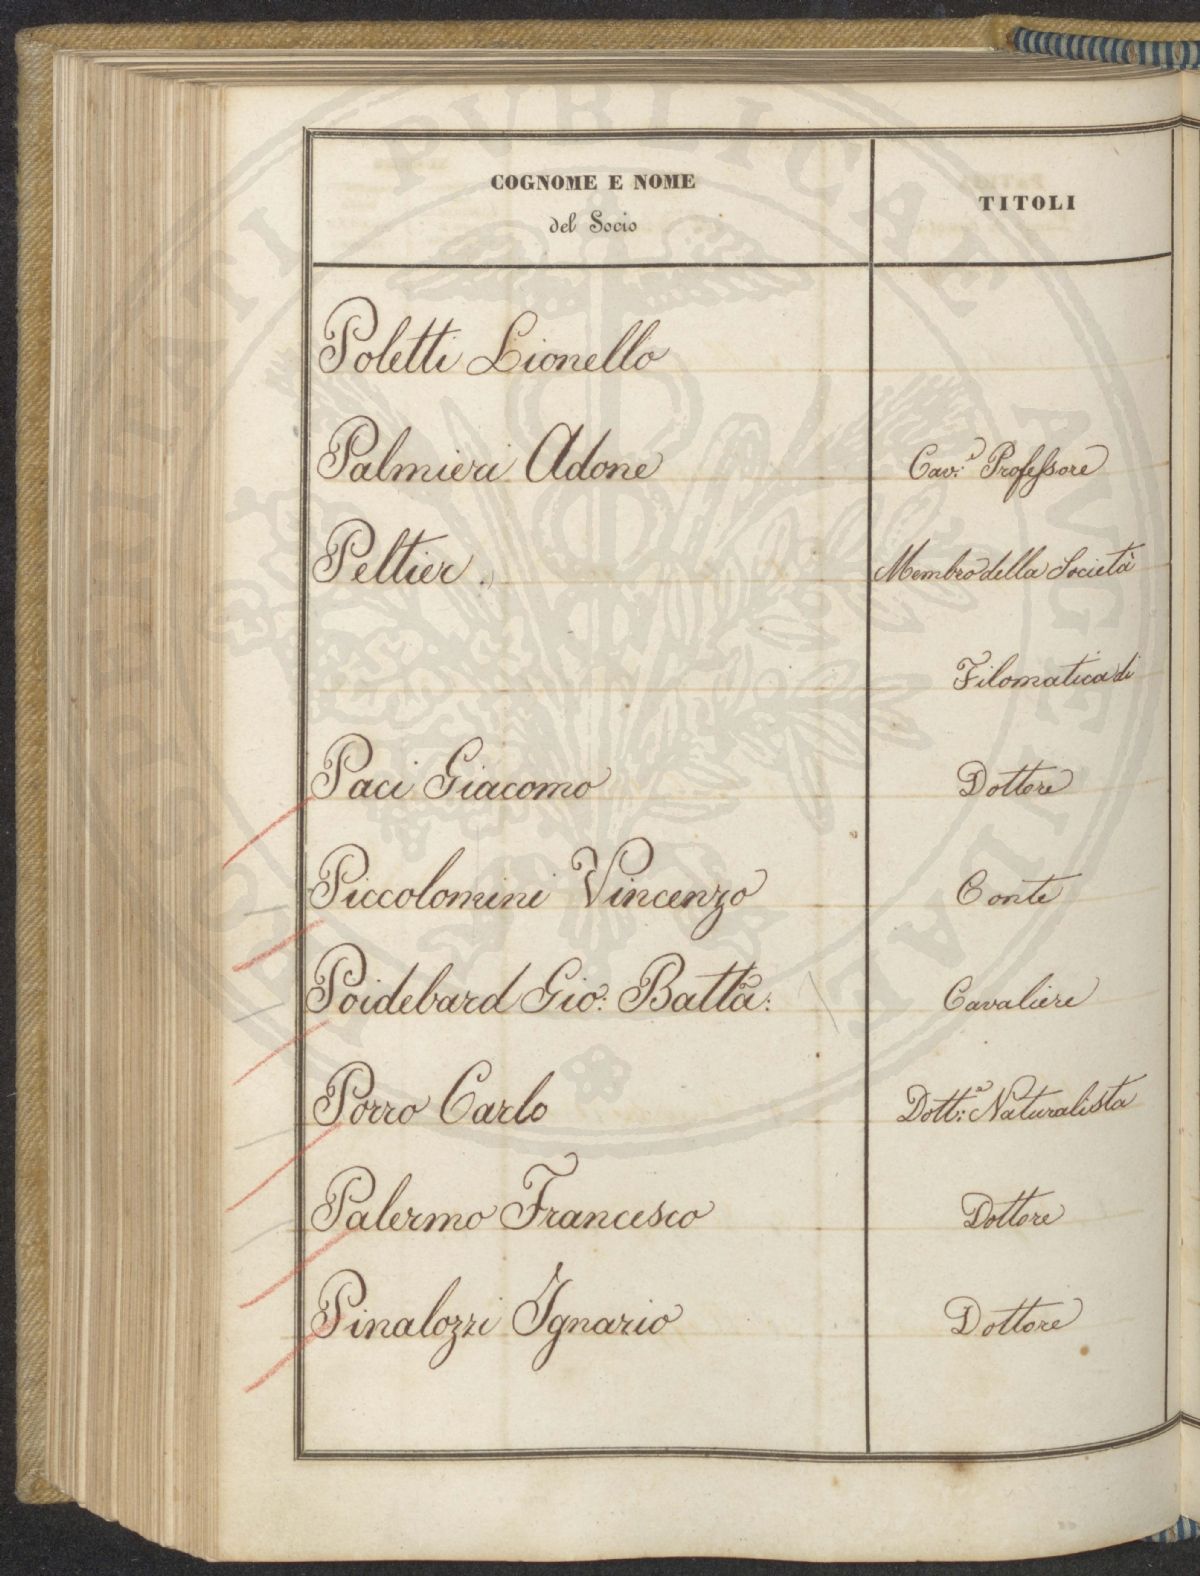 COGNOME E NOME
del Socio
TITOLI
Poletti Lionello
Palmieri Adone Cav.e Professore
Peltier. Membro della Società
Filomatica di
Paci Giacomo Dottore
Piccolomini Vincenzo Conte
Poidebard Gio: Batta: Cavaliere
Porro Carlo Dott:e Naturalista
Palermo Francesco Dottore
Pinalozzi Ignazio Dottore